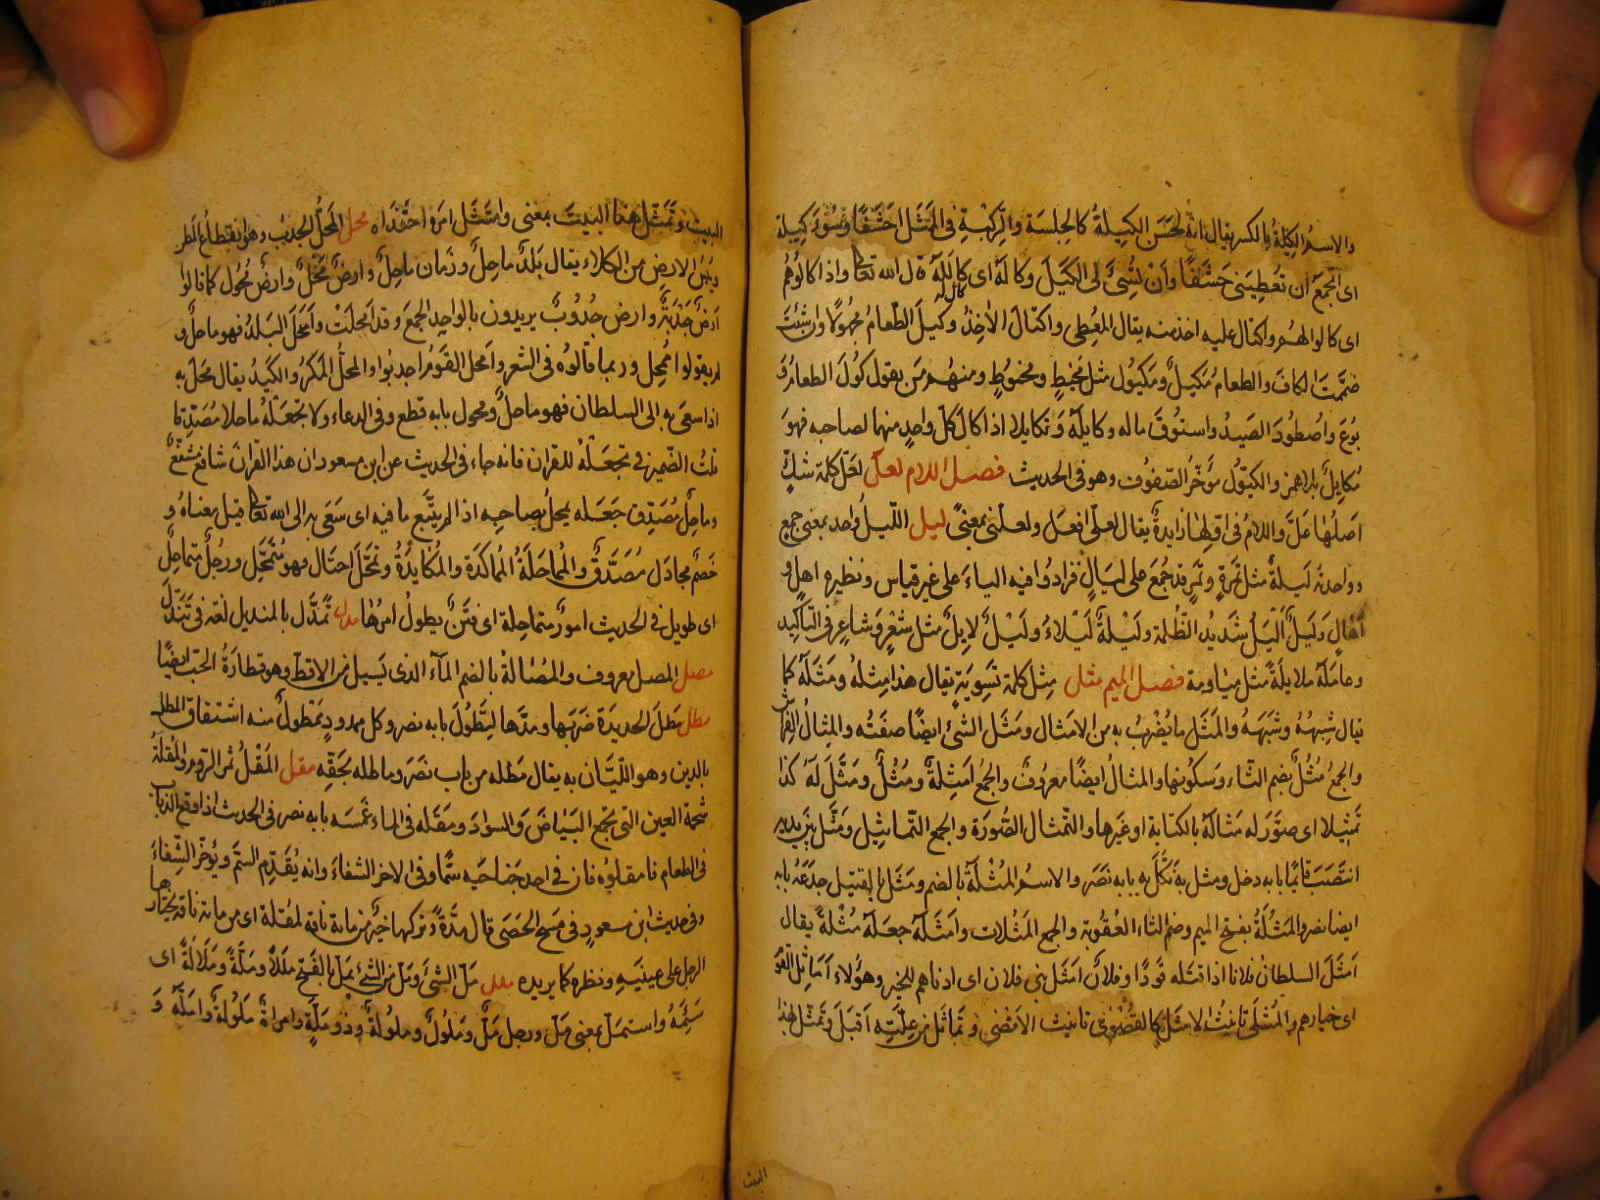 والاسم الكِيلةُ بالكسر يقال انهُ لحَسَن الكِيلةُ كالجِلسَة والرِّكبةِ في المَثَل اَحَشَفًا وسُوْءَ كِيلة
اى اتجمَعَ ان تُعطِيَنى حَشَفًا وَاَنْ تُسِئَ لى الكَيلَ وكالهُ اى كالَ لَهُ قال الله تعالى واذا كالُوهُم
اى كالوا لهم واكتال عليه اخذ منه يقال المُعطِى واكتالَ الآخِذُ وكيلَ الطّعامُ مجهولًا وان شئتَ
ضَمَمتَ الكافَ والطعامُ مُكِيلٌ ومَكيُول مثل مَخِيطٍ ومخيوطٍ ومنهُم مَن يقول كُولَ الطعامُ وَ
بُوعَ واصُطُودَ الصَيدُ واستُوقَ ماله وكايلَهُ وتَكايلا اذا كالَ كلّ واحدٍ منهما لصاحبه فهوَ
مُكايِلٌ بلا همزٍ والكَيّول مؤخّرُ الصّفوُف وهو فى الحديث فصل اللام لعلّ لعَلّ كلمة شكٍّ
اصَلُها عَلَّ واللامُ فى اوّلِها زايدةٌ يقال لعلّى افعَل ولعلّنى بمعنىً ليل اللّيلُ واحد بمعنى جمع
وواحدته لَيلةٌ مثل تَمرَةٍ وتَمرٍ قد جُمعَ على ليَالٍ فزادوُا فيه الياءَ على غيرِ قياس ونظيره اهلٍ و
اَهالٍ ولَيلٌ اَلْيَلُ شَديدُ الظُلمة ولَيْلةٌ لَيْلاءُ ولَيْلٌ لايِلٌ مثل شِعْرٍ وشاعِرٍ فى التأكيد
وعامَلهُ مُلايَلَةً مثل مياومة فصل الميم مثل مِثل كلمة تسوِيَةٍ يقال هذا مِثلهُ ومَثَلهُ كما
يقال شِبهُهُ وشَبَهَهُ والمَثَل ما يُضْرَبُ به من الامثال ومَثَل الشئ ايضًا صفتُه والمِثالُ الفِراش
والجمع مُثُلٌ بضم الثاء وسكونها والمثالُ ايضًا معروفٌ والجمع امَثِلةٌ ومُثُلٌ ومَثَّلَ لَهُ كذا
تمثيلا اى صَوَّرَ له مثالَهُ بالكتابة او غيرها والتّمثال الصُّورَة والجمع التّماثيل ومَثَل بيَن يديه
انتَصَبَ قائمًا بابه دخل ومثل به نَكَّلَ به بابه نَصَرَ والاسمُ المُثْلَةُ بالضم ومَثَل بالقتيل جدَعَهُ بابه
ايضا نصر والمَثُلَةُ بفتح الميم وضم الثاء العُقوبة والجمع المَثُلات وامَثَلَهُ جعَلَهُ مُثْلَةً يقال
اَمثَلَ السلطانُ فلانا اذا قتَله قَودًا وفلانٌ امثَلُ بنى فلان اى ادناهم للخير وهؤلاء اَماثِلُ القوم
اى خيارهم والمُثْلى تانيثُ الامثَل كالقُصْوى تانيث الاَقصى وتَماثَل من عِلّتِه اَقبَلَ وتمثّلَ هذا
البيت
البيت وتَمَثّلَ بهذا البيت بمعنى وامتثَل امَره احتَذَاه محل المَحلُ الجدبُ وهوَ انقِطاعُ المَطر
ويُبسُ الارضِ من الكلاء يقال بَلَدٌ ماحِلٌ وزمان ماحِلٌ وارضٌ مَحْلٌ وارضٌ مُحُول كما قالوا
اَرضٌ جَدْبَةٌ وارض جُدُوبٌ يريدون بالواحِدِ الجمعَ وقد امَحلَتْ وامَحَلَ البَلدُ فهو ماحِلٌ و
لم يقولوا مُمحِل وربما قالوُه فى الشعر وامحل القومُ اجدبوُا والمحَلُ المَكرُ والكَيدُ يقال محَلَ به
اذا سعَى به الى السلطان فهو ماحلٌ ومحول بابه قطع وفى الدعاء ولا تجعَلْهُ ماحلا مُصَدّقا
قلتُ الضَميرُ في تجعَلْهُ للقران فانه جاء فى الحديث عن ابن مسعود ان هذا القرانَ شافعٌ مشَفّعٌ
وماحِلٌ مُصَدّق جَعَله يمحَلُ بصاحِبِه اذا لم يتَّبِع ما فيه اى سَعَى به الى الله تعالى قيل معناهُ و
خَصْم مجادَل مُصَدَّقٌ والمُماحَلَةُ المُماكَرَة والمُكايَدةُ وتمحَّلَ احتال فهو مُتَمَحِّلٌ ورجُلٌ متماحِلٌ
اى طويل فى الحديث امورٌ متماحِلة اى فِتَنٌ يطولُ امرُها مدل تمَدَّل بالمنديل لغة فى تَنَدَّل
مصل المصل معروف والمُصَالةُ بالضم المآء الذى يَسيل من الاقِطِ وهو قطارَةُ الحُبّ ايضًا
مطل مَطَلَ الحديدَة ضَرَبَها ومدّها لِتَطُولَ بابه نصر وكل ممدودٍ مَمْطولٌ منه اشتقاق المَطل
بالدين وهو الليّان به يقال مَطَله من باب نَصَرَ وماطَله بحَقّه مقل المُقْلُ ثَمر الدّوم والمُقلَةُ
شَحمة العين التى تجمع البَيَاضَ والسوادَ ومَقَله فى الماء غمَسَه بابه نصر فى الحديث اذا وقع الذباب
فى الطعام فامقلوُه فان فى احد جَنَاحَيه سَمًّا وفى الاخرِ الشِّفاءَ وانه يُقَدِّم السّمَ ويُؤخّر الشِّفاءَ
وفى حديث ابن مسعودٍ فى مَسح الحَصَى قال مرّةً وتركها خيرٌ من مائة ناقة لمُقلة اى من مائة ناقة يختارها
الرجل على عينِهِ ونظره كما يريده ملل مَلّ الشئَ ومَلّ من الشئ يمَلّ بالفتح مللًا ومَلّةً ومَلالَةً اى
سَئِمَهُ واستملّ بمعنى مَلّ ورجل مَلٌّ ومَلُولٌ وملولَةٌ وذُو مَلّةٍ وامراةٌ مَلُولةٌ وامَلّهُ وَ